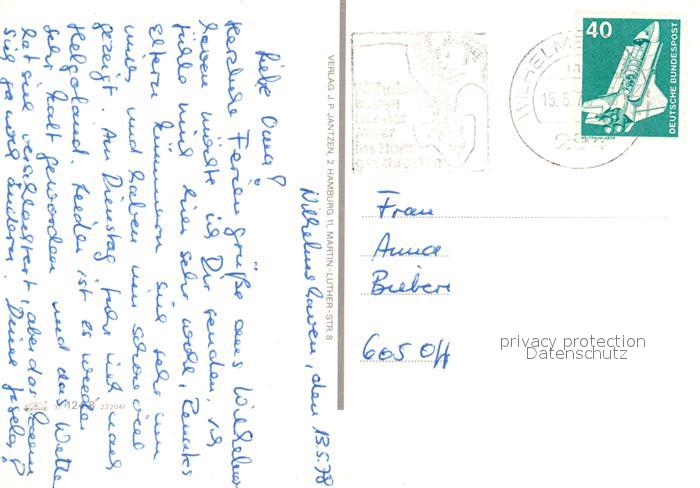 Wilhelmshaven, den 13.5.78
Liebe Oma!
Herzliche Feriengrüße aus Wilhelms
haven möchte ich Dir senden. Ich
fühle mich hier sehr wohl,
Eltern kümmern sich sehr um
mich und haben mir schon viel
gezeigt. Am Dienstag fuhr ich nach
Helgoland. Leider ist es wieder
sehr kalt geworden und das Wetter
hat sich verschlechtert, aber das kann
sich ja noch ändern. Deine
VERLAG J. P. JANTZEN, 2 HAMBURG 11, MARTIN-LUTHER-STR 8
222041
40
DEUTSCHE BUNDESPOST
WELTRAUMLABOR
WILHELMS
15.5.7
Frau
Anna
Biebers
605 Off
privacy protection
Datenschutz